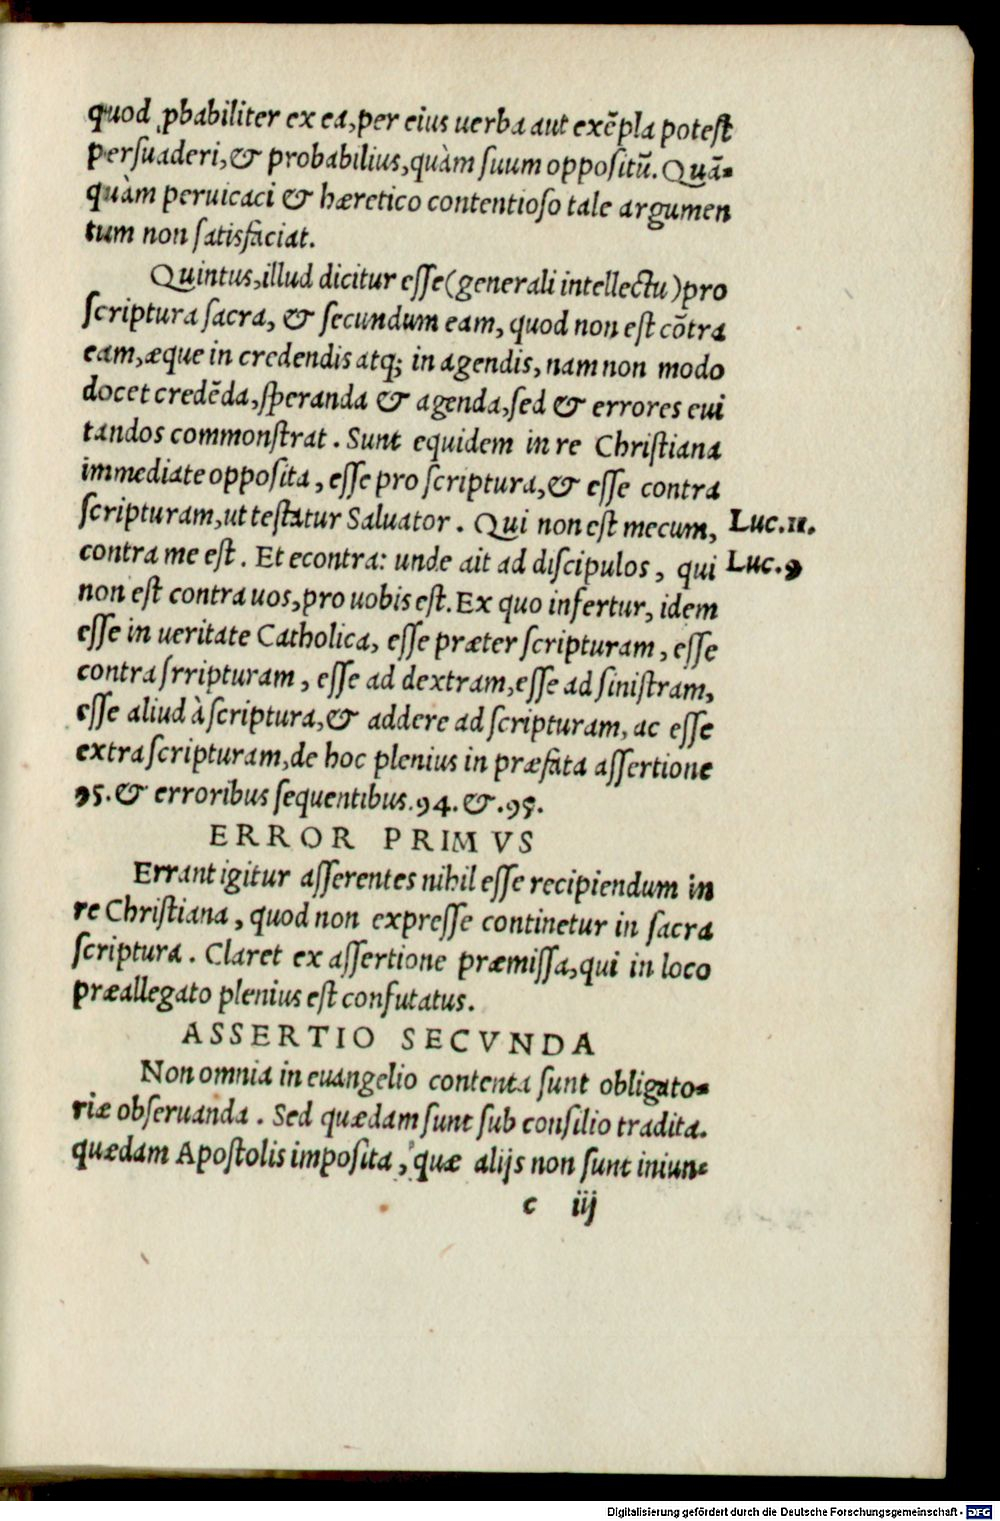 quod ꝓbabiliter ex ea, per eius uerba aut exẽpla potest
persuaderi, & probabilius, quàm suum oppositũ. Quã-
quàm peruicaci & hæretico contentioso tale argumen
tum non satisfaciat.
Quintus, illud dicitur esse (generali intellectu) pro
scriptura sacra, & secundum eam, quod non est cõtra
eam, æque in credendis atq; in agendis, nam non modo
docet credẽda, speranda & agenda, sed & errores eui
tandos commonstrat. Sunt equidem in re Christiana
immediate opposita, esse pro scriptura, & esse contra
scripturam, ut testatur Saluator. Qui non est mecum, Luc.11.
contra me est. Et econtra: unde ait ad discipulos, qui Luc.9
non est contra uos, pro uobis est. Ex quo infertur, idem
esse in ueritate Catholica, esse præter scripturam, esse
contra srripturam, esse ad dextram, esse ad sinistram,
esse aliud à scriptura, & addere ad scripturam, ac esse
extra scripturam, de hoc plenius in præfata assertione
95. & erroribus sequentibus. 94. &. 95.
ERROR PRIMVS
Errant igitur asserentes nihil esse recipiendum in
re Christiana, quod non expresse continetur in sacra
scriptura. Claret ex assertione præmissa, qui in loco
præallegato plenius est confutatus.
ASSERTIO SECVNDA
Non omnia in euangelio contenta sunt obligato-
riæ obseruanda. Sed quædam sunt sub consilio tradita.
quædam Apostolis imposita, quæ alijs non sunt iniun-
c iij
Digitalisierung gefördert durch die Deutsche Forschungsgemeinschaft - DFG